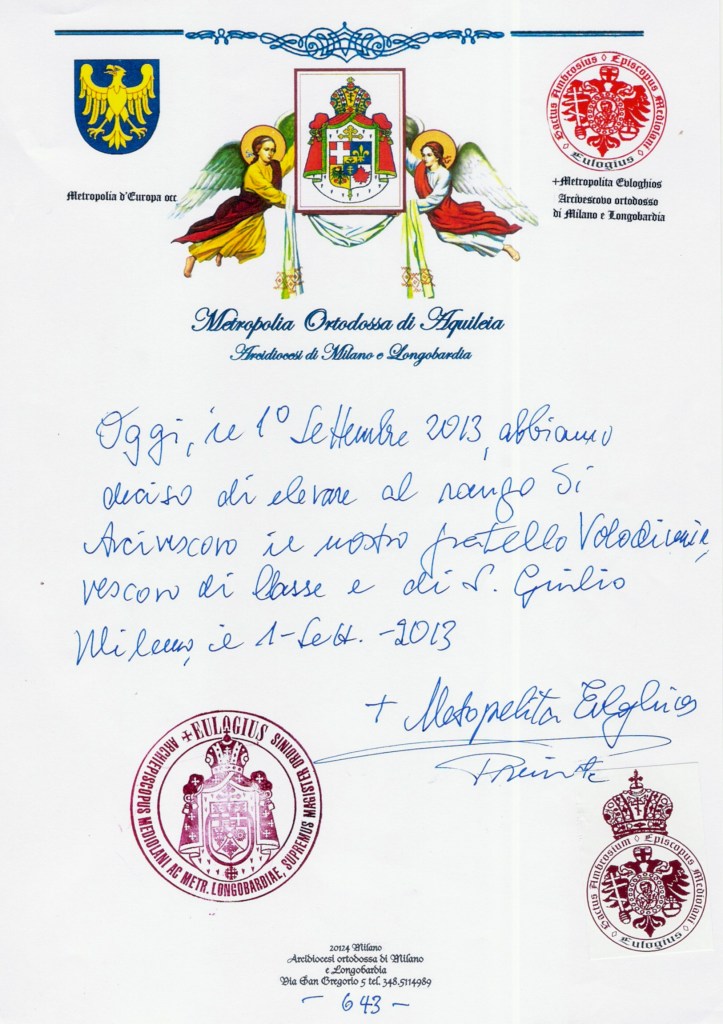 Metropolia d'Europa occ
Sactus Ambrosius ◊ Episcopus Mediolani ◊
Eulogius
+Metropolita Evloghios
Arcivescovo ortodosso
di Milano e Longobardia
Metropolia Ortodossa di Aquileia
Arcidiocesi di Milano e Longobardia
Oggi, il 1º Settembre 2013, abbiamo
deciso di elevare al rango di
Arcivescovo il nostro fratello Volodimir,
vescovo di Classe e di S. Giulio
Milano, il 1-Sett.-2013
+ Metropolita Evloghios
Primate
+EULOGIUS
ARCHIEPISCOPUS MEDIOLANI AC METR. LONGOBARDIAE, SUPREMUS MAGISTER ORDINIS
Sactus Ambrosium ◊ Episcopus Mediolani
Eulogius
20124 Milano
Arcidiocesi ortodossa di Milano
e Longobardia
Via San Gregorio 5 tel. 348.5114989
- 643 -